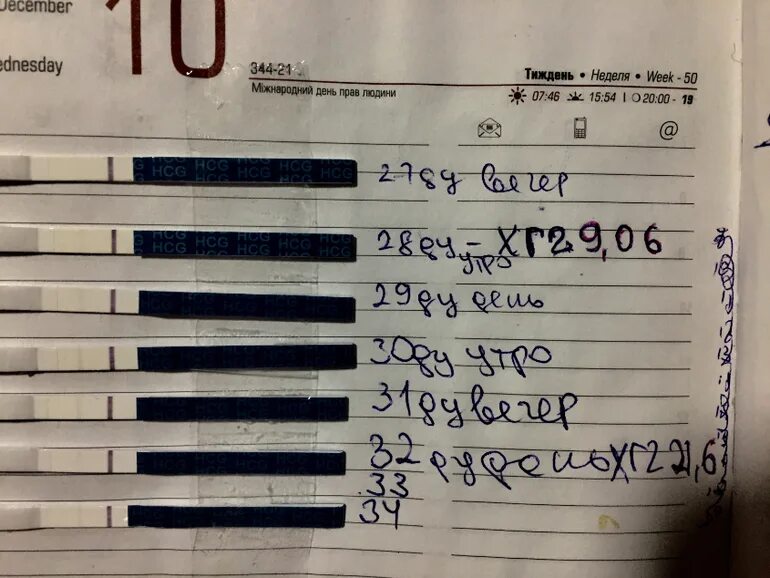 December
Wednesday
10
344-21
Міжнародний день прав людини
Тиждень • Неделя • Week - 50
07:46 15:54 | 20:00 - 19
@
HCG HCG HCG HCG HCG
27ду вечер
HCG HCG HCG HCG HCG
28ду - ХГ29,06
утро
29ду день
30ду утро
31ду вечер
32 ду день ХГ221,6
33
34